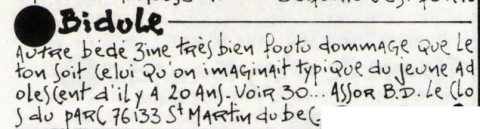 Bidule
Autre bédé zine très bien foutu dommage que le
ton soit celui qu'on imaginait typique du jeune ad
olescent d'il y a 20 ans. Voir 30... Assor B.D. Le Clo
s du parc 76133 St Martin du bec.